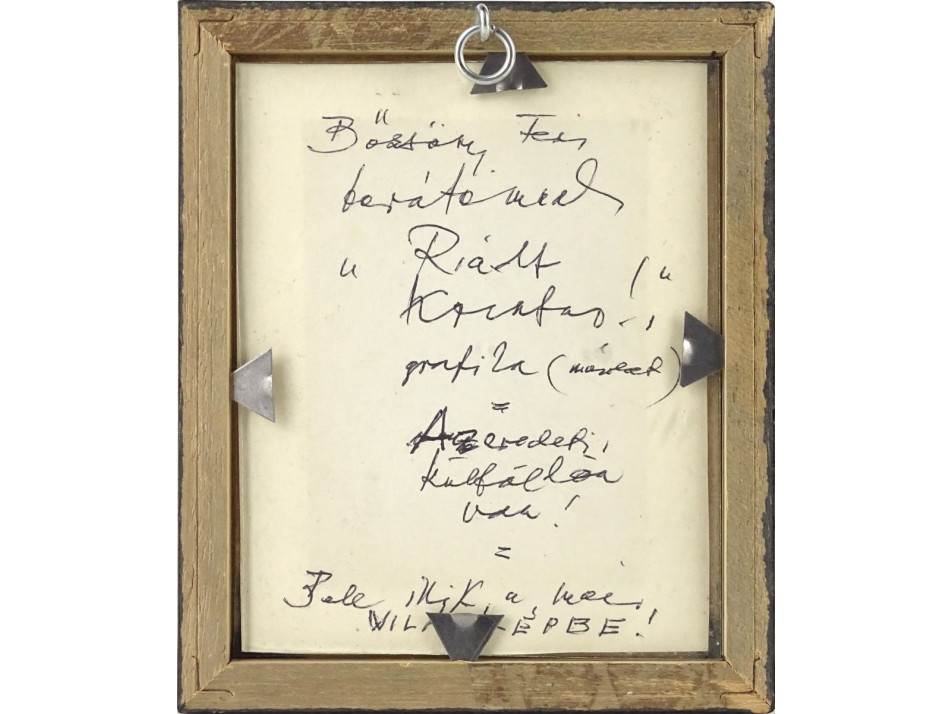 Bőzsöny Feri
barátomnak
" Riadt
Kacatus.!"
grafika (másolat)
=
Az eredeti,
külföldön
van!
=
Bele illik, a mai,
VIL ÉPBE!